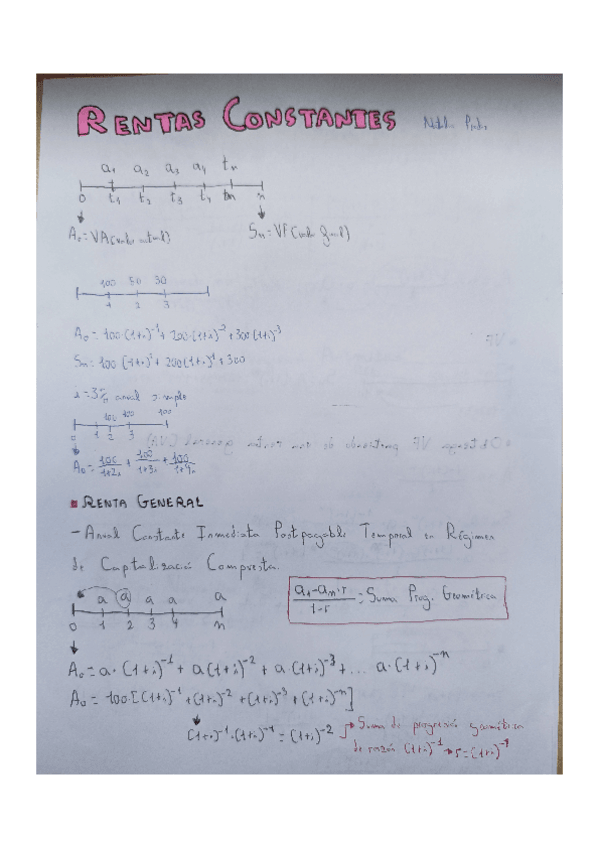 RENTAS CONSTANTES
a₁ a₂ a₃ a₄ tₙ
0 t₁ t₂ t₃ t₄ n
A₀=VA(valor actual) Sₙ=VF(valor final)
100 50 30
1 2 3
A₀=100·(1+i)⁻¹+200·(1+i)⁻²+300(1+i)⁻³
Sₙ=100·(1+i)²+200(1+i)¹+300
i=3% anual simple
100 100 100
0 1 2 3
A₀=100/1+2i + 100/1+3i + 100/1+4i
RENTA GENERAL
- Anual Constante Inmediata Postpagable Temporal en Régimen
de Captalizació Compuesta.
a a a a a
0 1 2 3 4 n
a₁-aₙ·r/1-r = Suma Prog. Geométrica
A₀=a·(1+i)⁻¹+a(1+i)⁻²+a(1+i)⁻³+... a·(1+i)⁻ⁿ
A₀=100·[(1+i)⁻¹+(1+i)⁻²+(1+i)⁻³+(1+i)⁻ⁿ]
(1+i)⁻¹·(1+i)⁻¹=(1+i)⁻² → Suma de progresión geométrica
de razón (1+i)⁻¹→r=(1+i)⁻¹